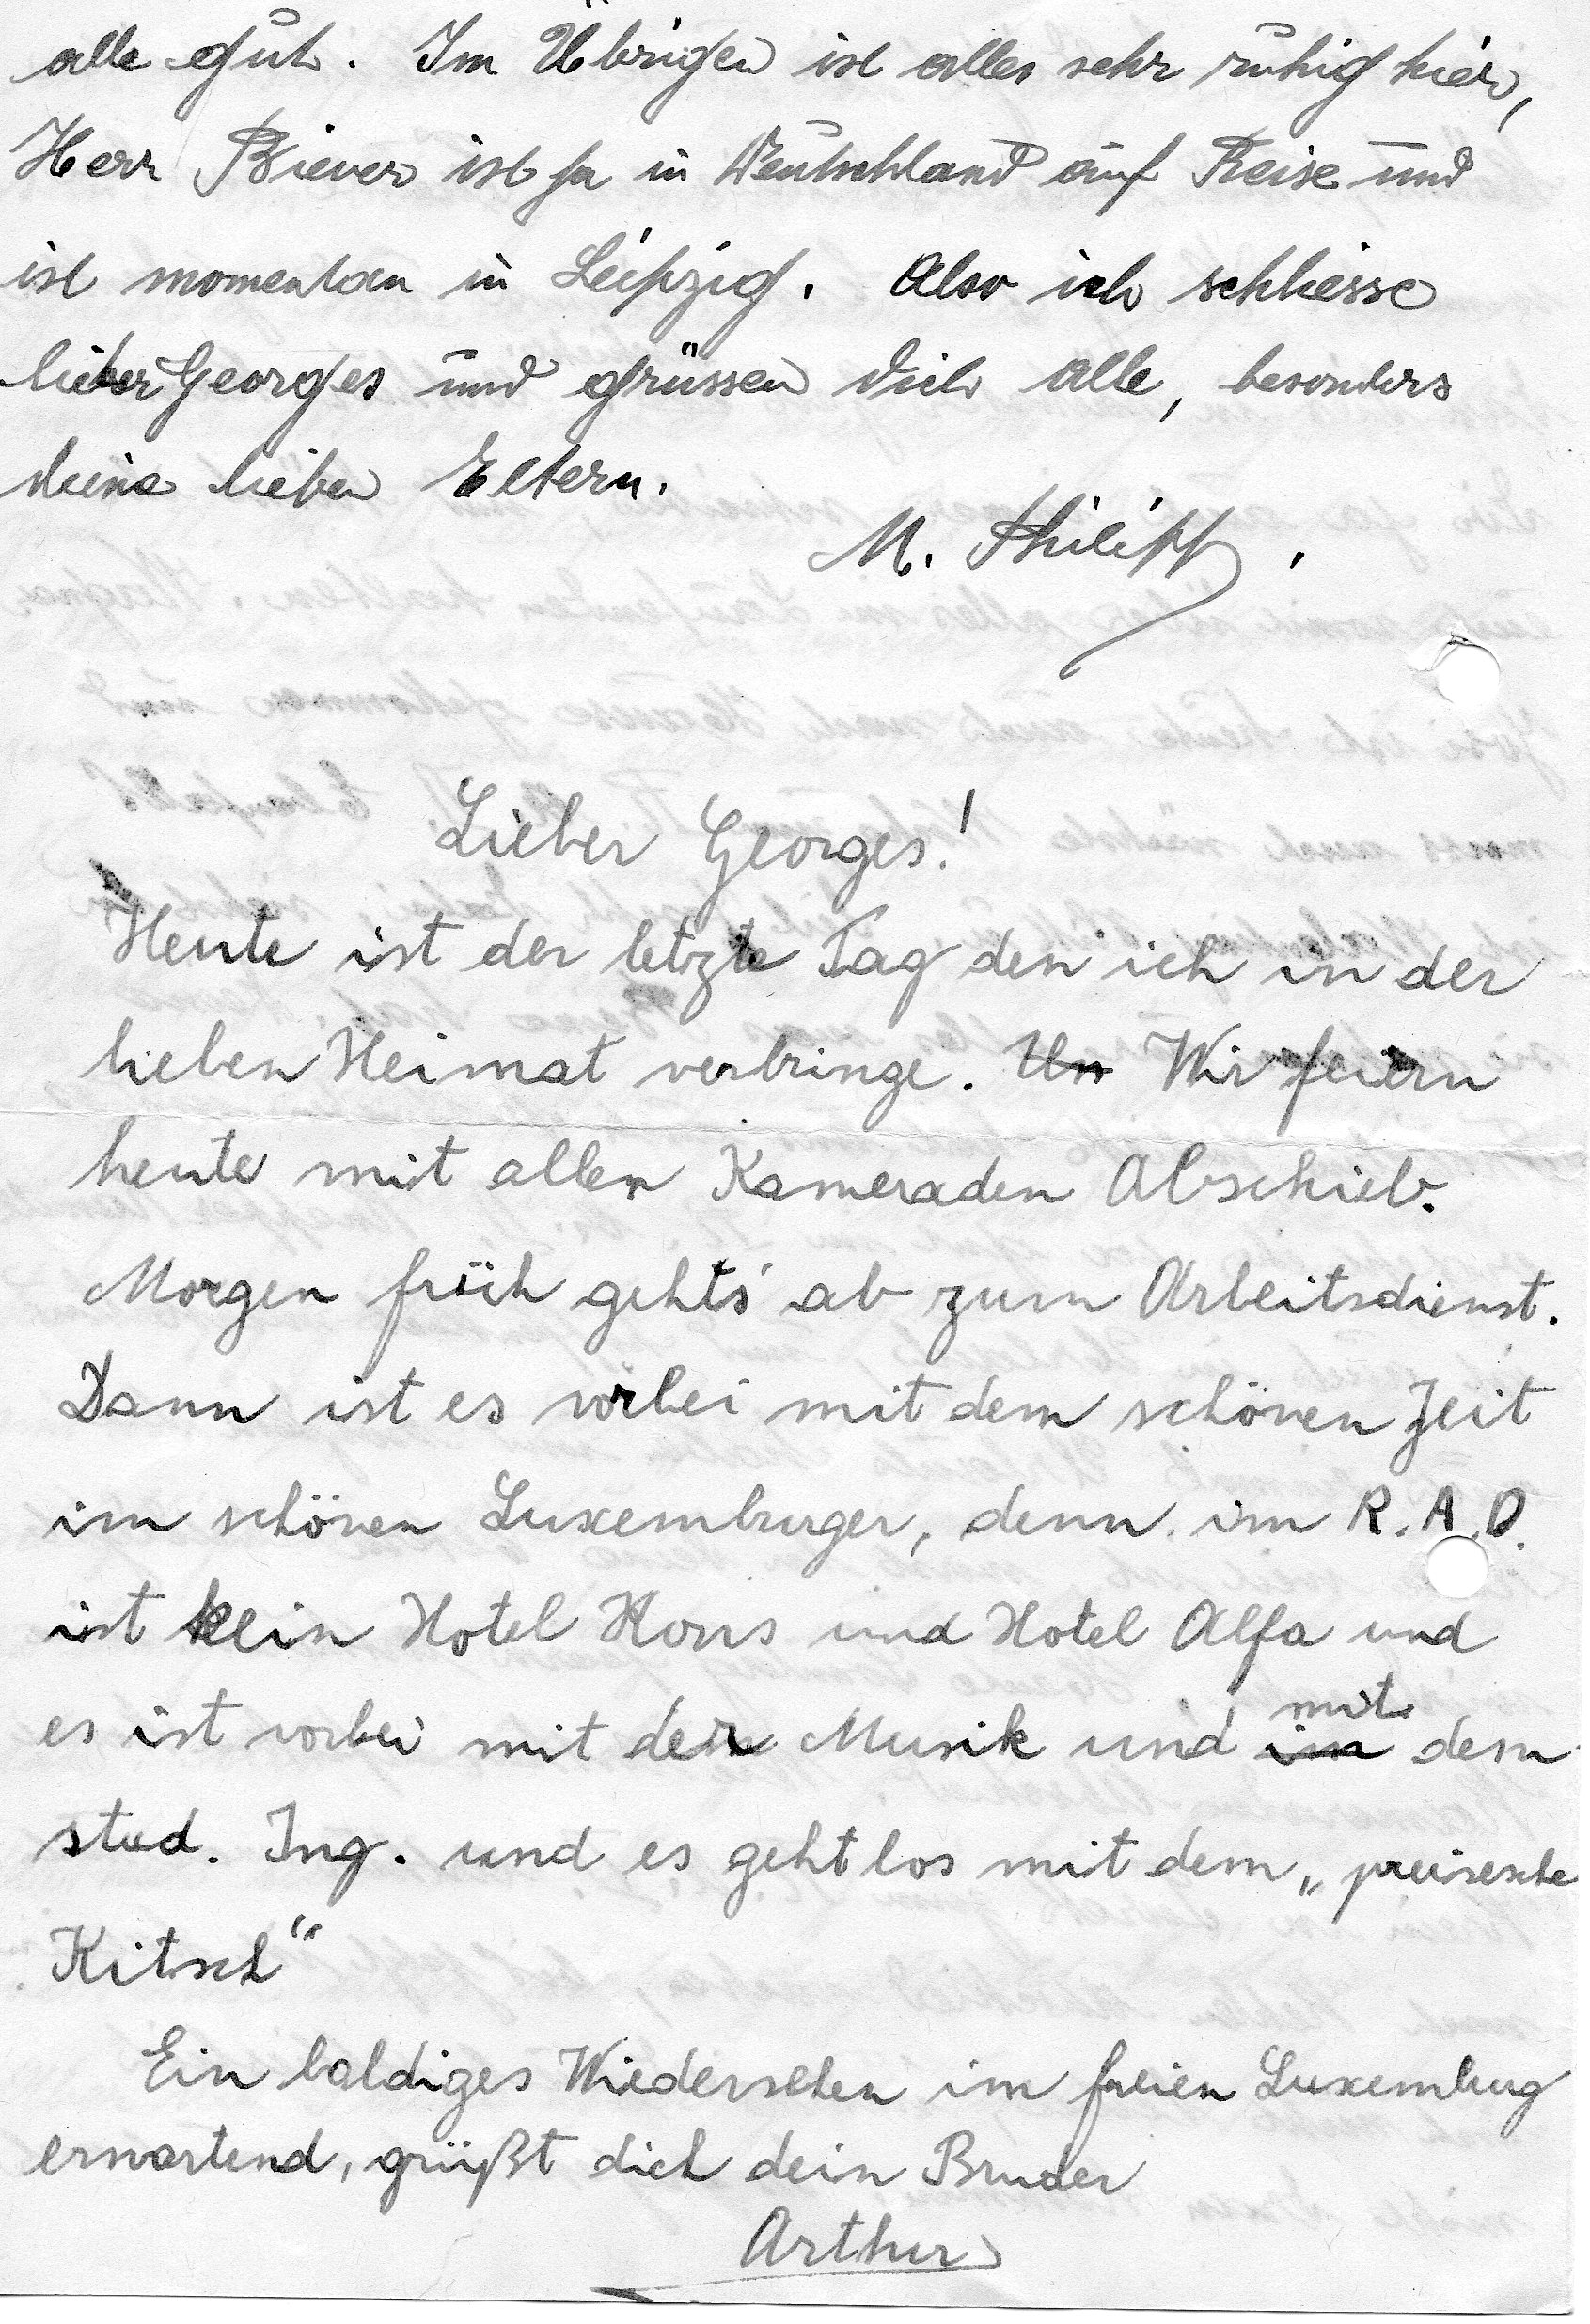 alle gut. Im Übrigen ist alles sehr ruhig hier,
Herr Biever ist ja in Deutschland auf Reise und
ist momentan in Leipzig. Also ich schliesse
lieber Georges und grüssen dich alle, besonders
deine lieben Eltern.
M. Philipp.
Lieber Georges!
Heute ist der letzte Tag den ich in der
lieben Heimat verbringe. Un Wir feiern
heute mit allen Kameraden Abschieb.
Morgen früh geht's ab zum Arbeitsdienst.
Dann ist es vorbei mit dem schönen Zeit
im schönen Luxemburger, denn im R.A.D.
ist kein Hotel Hons und Hotel Alfa und
es ist vorbei mit der Musik und im mit dem
stud. Ing. und es geht los mit dem „preisesche
Kitsch“
Ein baldiges Wiedersehen im freien Luxemburg
erwartend, grüßt dich dein Bruder
Arthur